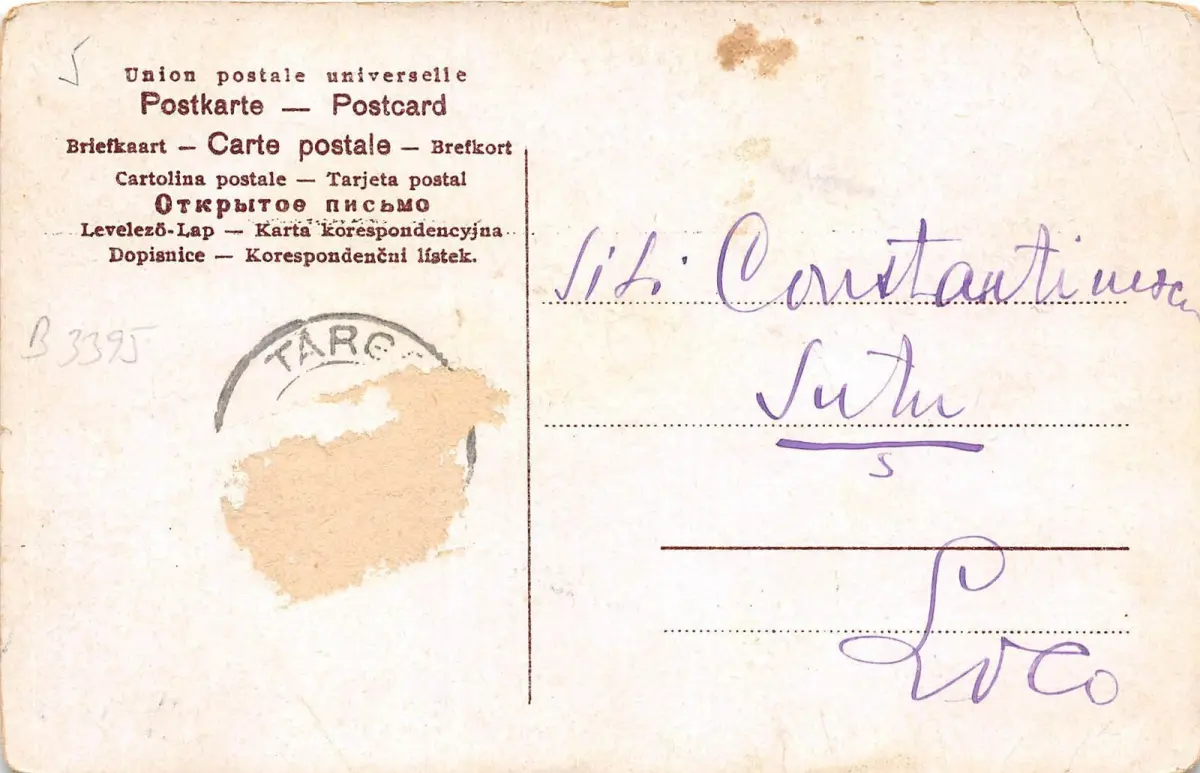 Union postale universelle
Postkarte — Postcard
Briefkaart — Carte postale — Brefkort
Cartolina postale — Tarjeta postal
Открытое письмо
Levelező-Lap — Karta korespondencyjna
Dopisnice — Korespondenční lístek.
B 3395
TARG
Constantinescu
Sutu
5
Loco